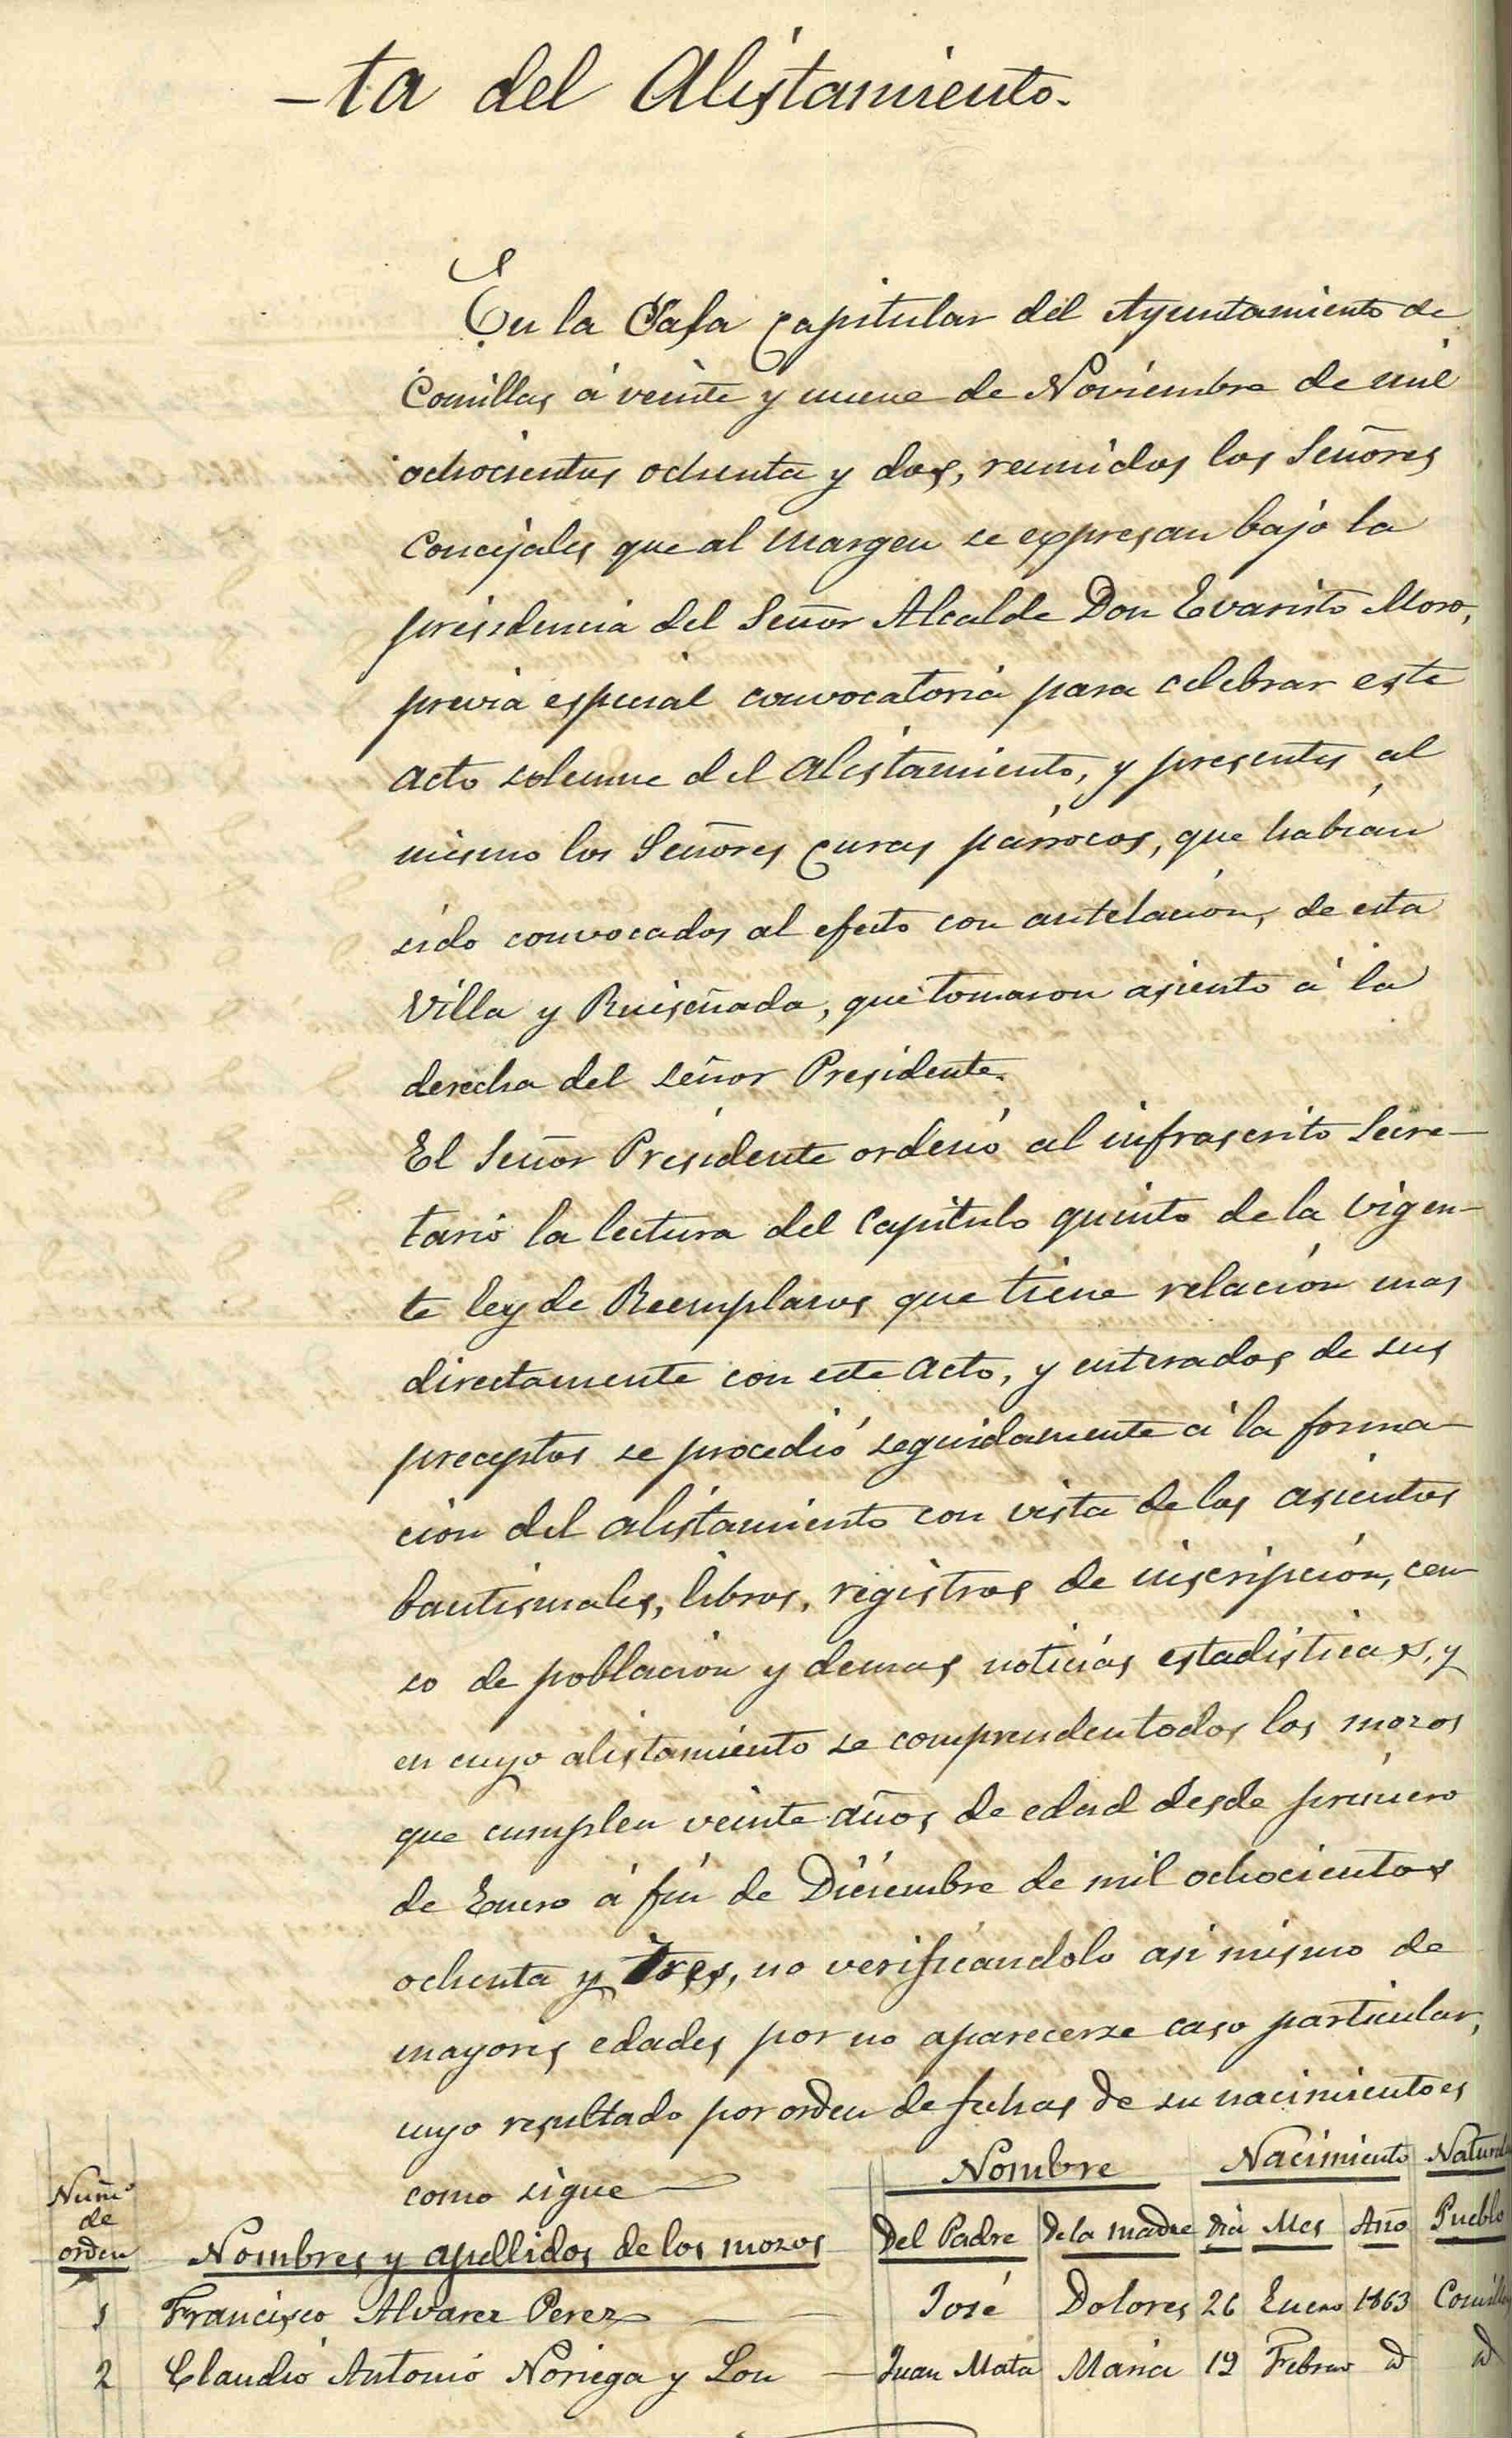 -ta del Alistamiento.
En la Casa Capitular del Ayuntamiento de
Comillas á veinte y nueve de Noviembre de mil
ochocientos ochenta y dos, reunidos los Señores
Concejales que al margen se expresan bajo la
presidencia del Señor Alcalde Don Evaristo Moro,
previa especial convocatoria para celebrar este
acto solemne del alistamiento, y presentes al
mismo los Señores Curas párrocos, que habían
sido convocados al efecto con antelación, de esta
Villa y Ruiseñada, que tomaron asiento á la
derecha del señor Presidente.
El Señor Presidente ordenó al infrascrito Secre-
tario la lectura del Capitulo quinto de la vigen-
te ley de Reemplazos que tiene relación mas
directamente con este acto, y enterados de sus
preceptos se procedió seguidamente á la forma-
ción del alistamiento con vista de los asientos
bautismales, libros, registros de inscripción, cen-
so de población y demas noticias estadísticas, y
en cuyo alistamiento se comprenden todos los mozos
que cumplen veinte años de edad desde primero
de Enero á fin de Diciembre de mil ochocientos
ochenta y tres, no verificándolo asi mismo de
mayores edades por no aparecerse caso particular,
cuyo resultado por orden de fechas de su nacimiento es
como sigue
Nombre Nacimiento
Núm.º de orden Nombres y apellidos de los mozos Del Padre De la madre Dia Mes Año Pueblo
1 Francisco Alvarez Perez José Dolores 26 Enero 1863 Comillas
2 Claudio Antonio Noriega y Lon Juan Mata Maria 19 Febrero id id